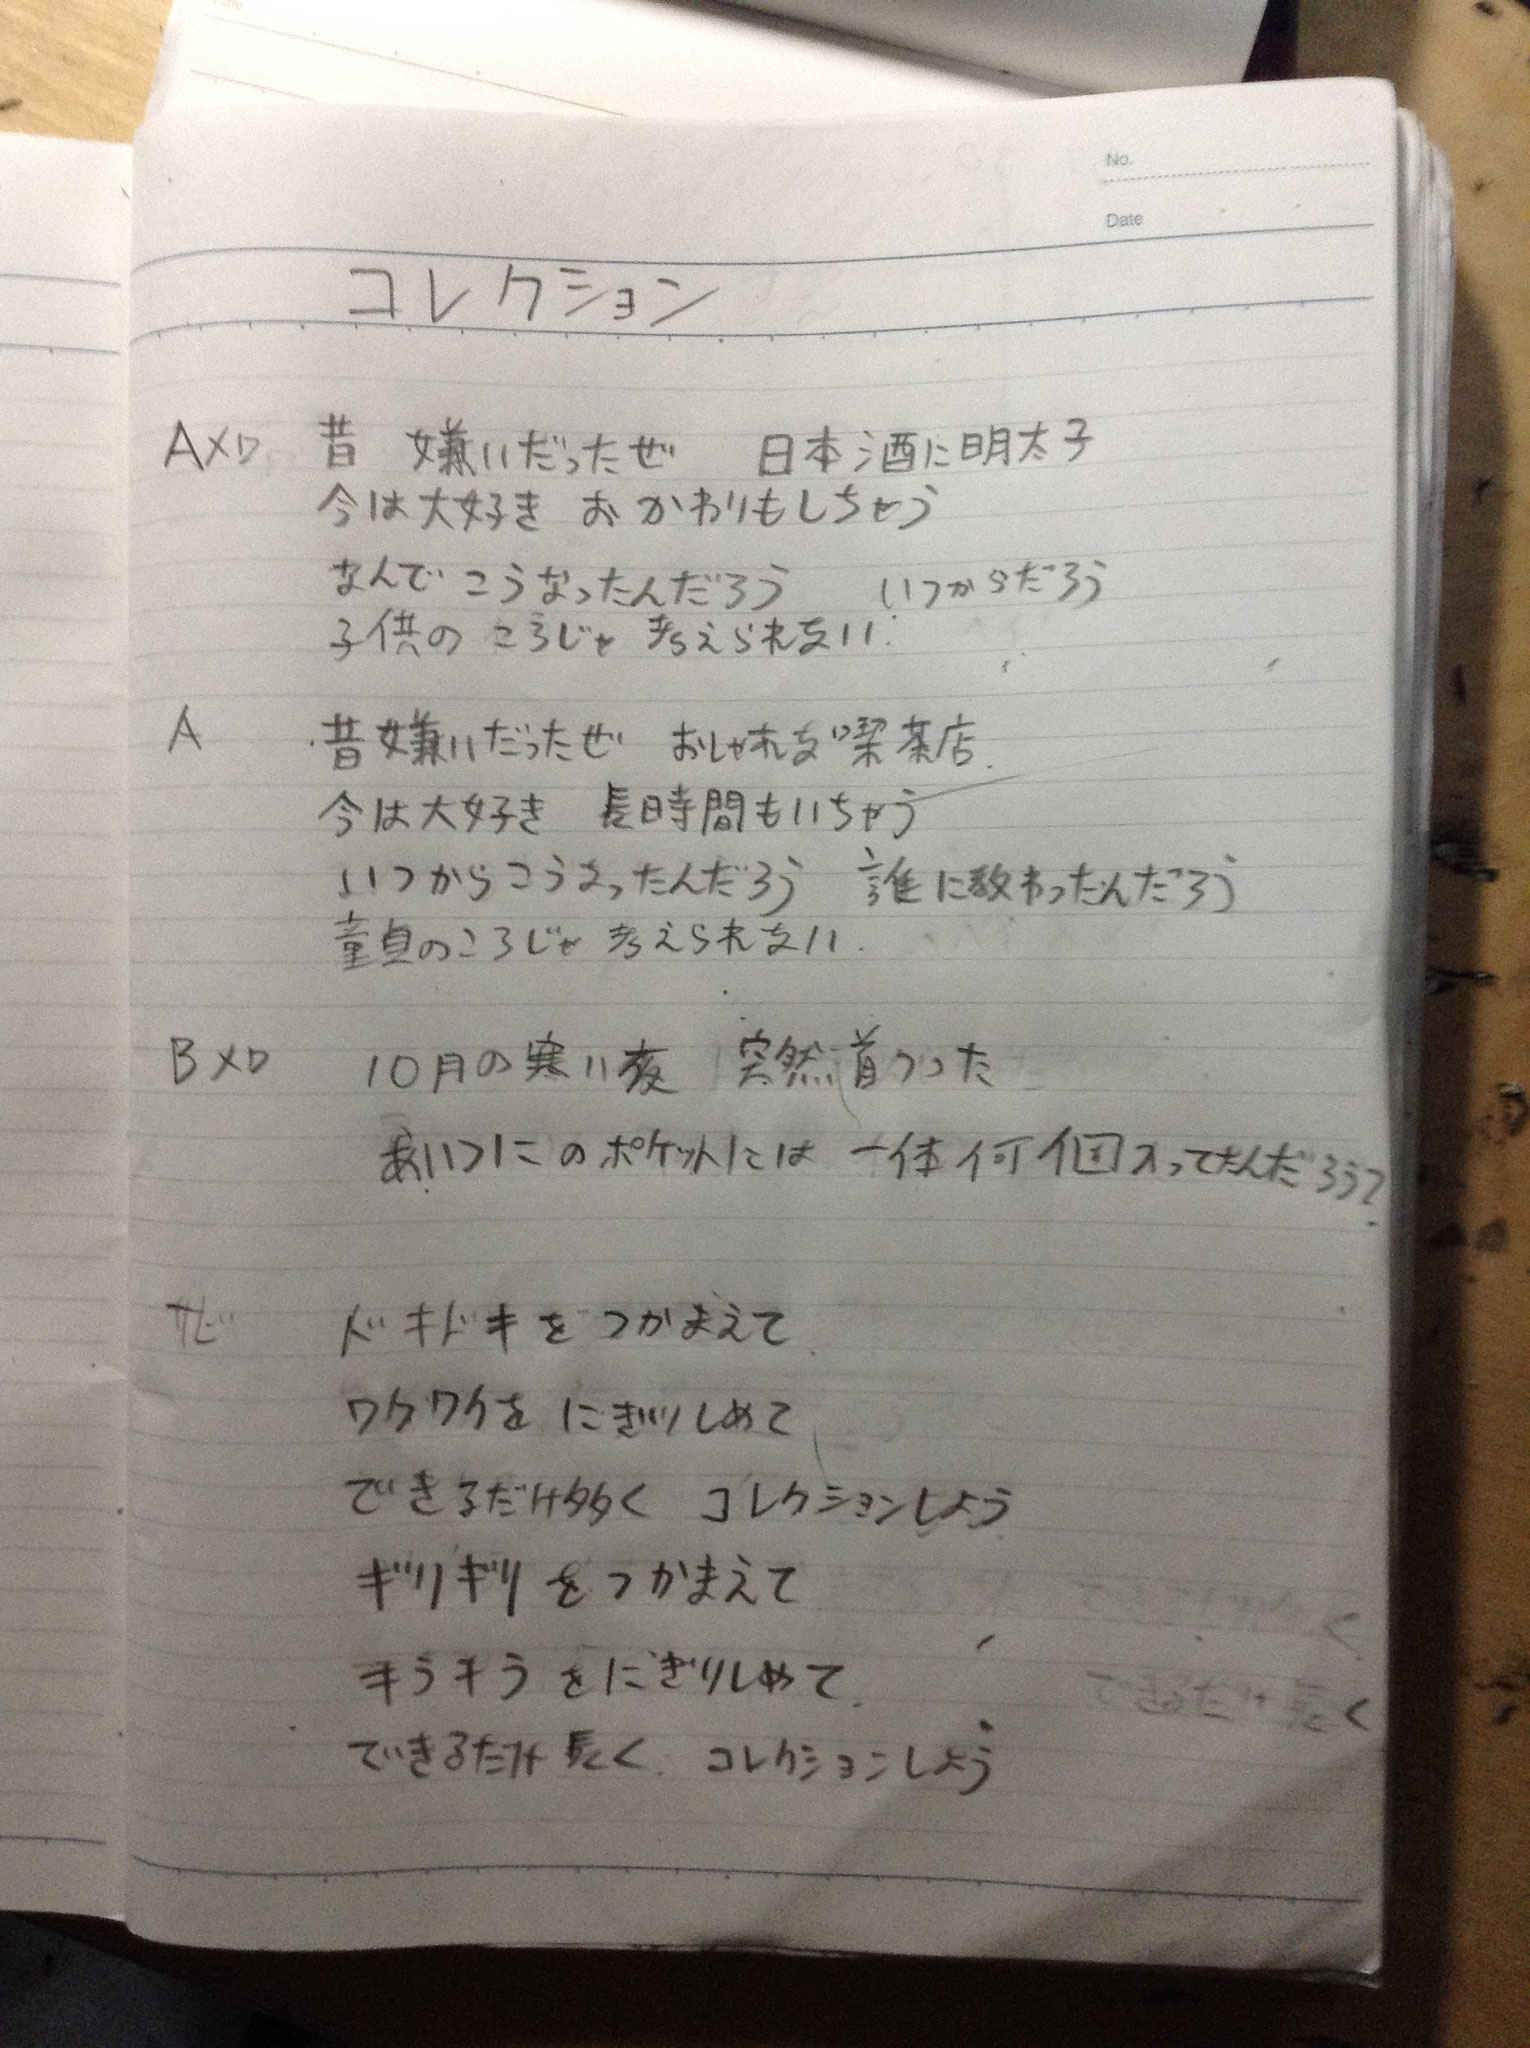 No.
Date
コレクション
Aメロ 昔 嫌いだったぜ 日本酒に明太子
今は大好き おかわりもしちゃう
なんでこうなったんだろう いつからだろう
子供のころじゃ考えられない
A 昔嫌いだったぜ おしゃれな喫茶店
今は大好き 長時間もいちゃう
いつからこうなったんだろう 誰に教わったんだろう
童貞のころじゃ考えられない
Bメロ 10月の寒い夜 突然首つった
あいつにのポケットには 一体何個入ってたんだろう?
サビ ドキドキをつかまえて
ワクワクをにぎりしめて
できるだけ多く コレクションしよう
ギリギリをつかまえて
キラキラをにぎりしめて
できるだけ長く コレクションしよう